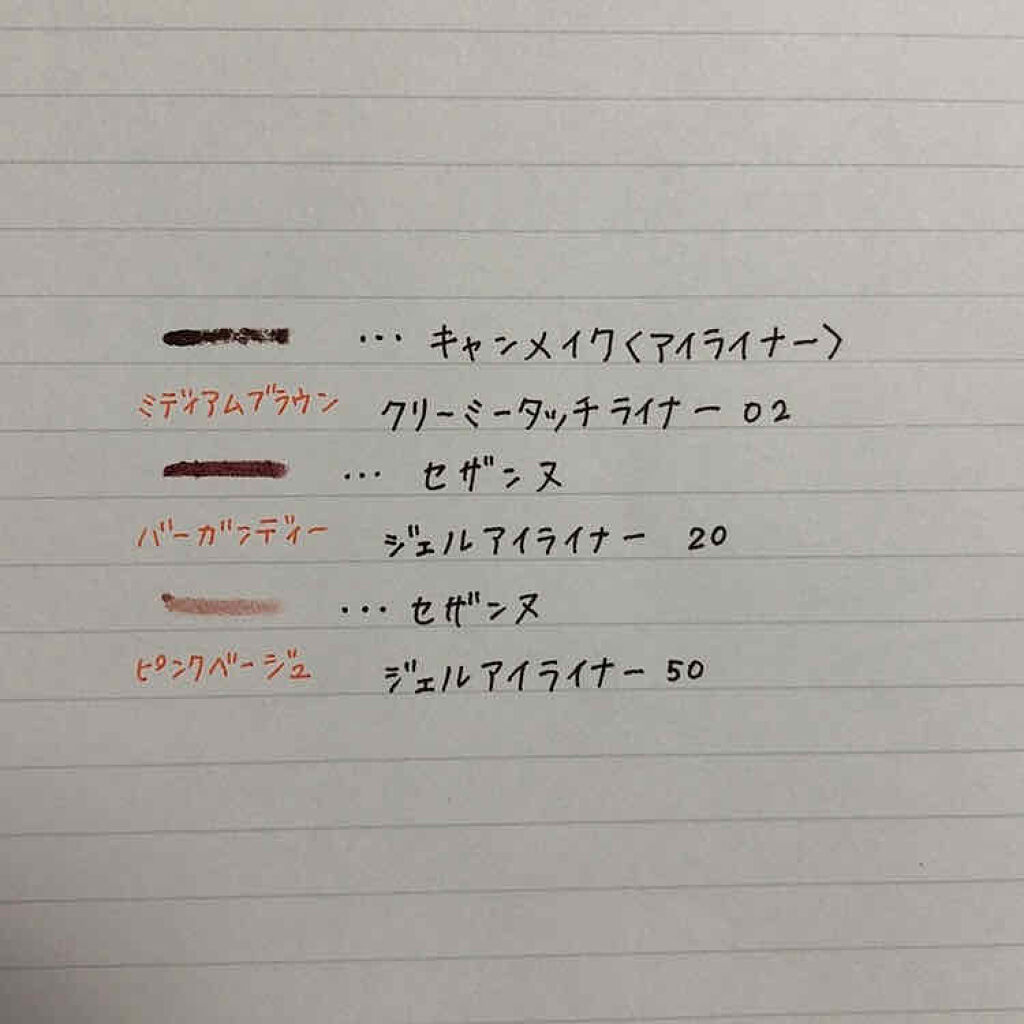 … キャンメイク〈アイライナー〉
ミディアムブラウン クリーミータッチライナー 02
… セザンヌ
バーガンディー ジェルアイライナー 20
… セザンヌ
ピンクベージュ ジェルアイライナー 50